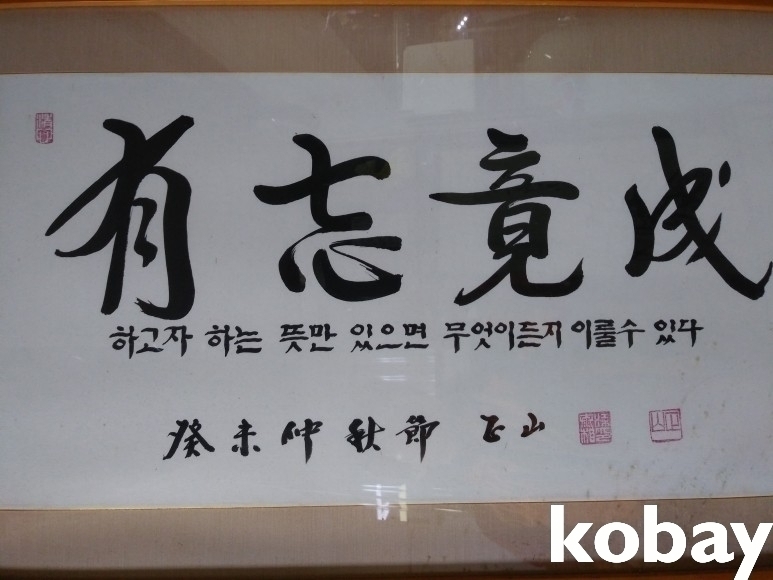 有志竟成
하고자 하는 뜻만 있으면 무엇이든지 이룰수 있다
癸未仲秋節 正山
kobay